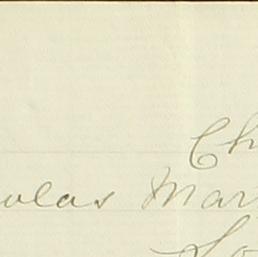 Ch
olas Mar
Lo